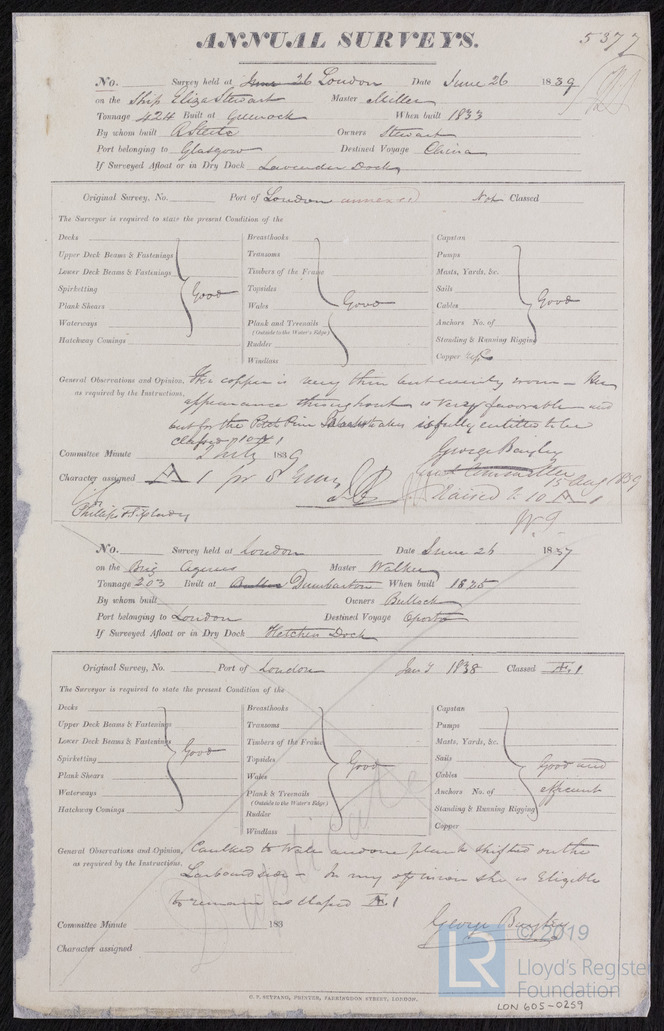 ANNUAL SURVEYS.
5377
No. Survey held at June 26 London Date June 26 1839
on the Ship Eliza Stewart Master Miller
Tonnage 424 Built at Greenock When built 1833
By whom built R Steele Owners Stewart
Port belonging to Glasgow Destined Voyage China
If Surveyed Afloat or in Dry Dock Lavender Dock
Original Survey, No. Port of London annexed Not Classed
The Surveyor is required to state the present Condition of the
Decks Breasthooks Capstan
Upper Deck Beams & Fastenings Transoms Pumps
Lower Deck Beams & Fastenings Timbers of the Frame Masts, Yards, &c.
Spirketting Good Topsides Sails
Plank Shears Wales Good Cables Good
Waterways Plank and Treenails Anchors No. of
(Outside to the Water's Edge)
Hatchway Comings Rudder Standing & Running Rigging
Windlass Copper
General Observations and Opinion, The copper is very thin but evenly worn – Her
as required by the Instructions, appearance throughout is very favorable – and
but for the Pitch Pine is fully entitled to be
classed 10 A 1
Committee Minute 2 July 1839 George Bayley
Character assigned A 1 for 8 Years
15 Aug 1839
Raised to 10 A 1
No. Survey held at London Date June 26 1837
on the Brig Agenus Master Walker
Tonnage 203 Built at Dumbarton When built 1825
By whom built Owners Bullock
Port belonging to London Destined Voyage Oporto
If Surveyed Afloat or in Dry Dock Fletchers Dock
Original Survey, No. Port of London Jany 1838 Classed Æ 1
The Surveyor is required to state the present Condition of the
Decks Breasthooks Capstan
Upper Deck Beams & Fastenings Transoms Pumps
Lower Deck Beams & Fastenings Timbers of the Frame Masts, Yards, &c.
Spirketting Good Topsides Good Sails Good and
Plank Shears Wales Cables
Waterways Plank & Treenails Anchors No. of efficient
(Outside to the Water's Edge)
Hatchway Comings Rudder Standing & Running Rigging
Windlass Copper
General Observations and Opinion, Caulked to Wales and one plank shifted on the
as required by the Instructions, Larboard side – In my opinion she is Eligible
to remain as classed Æ 1
Duplicate
Committee Minute 183 George Bayley
Character assigned
© 2019
LR Lloyd's Register
Foundation
C. F. SEYFANG, PRINTER, FARRINGDON STREET, LONDON.
LON 605-0259